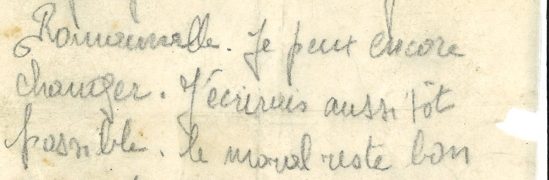 Romainville. Je peux encore
changer. J'écrirais aussitôt
possible. le moral reste bon